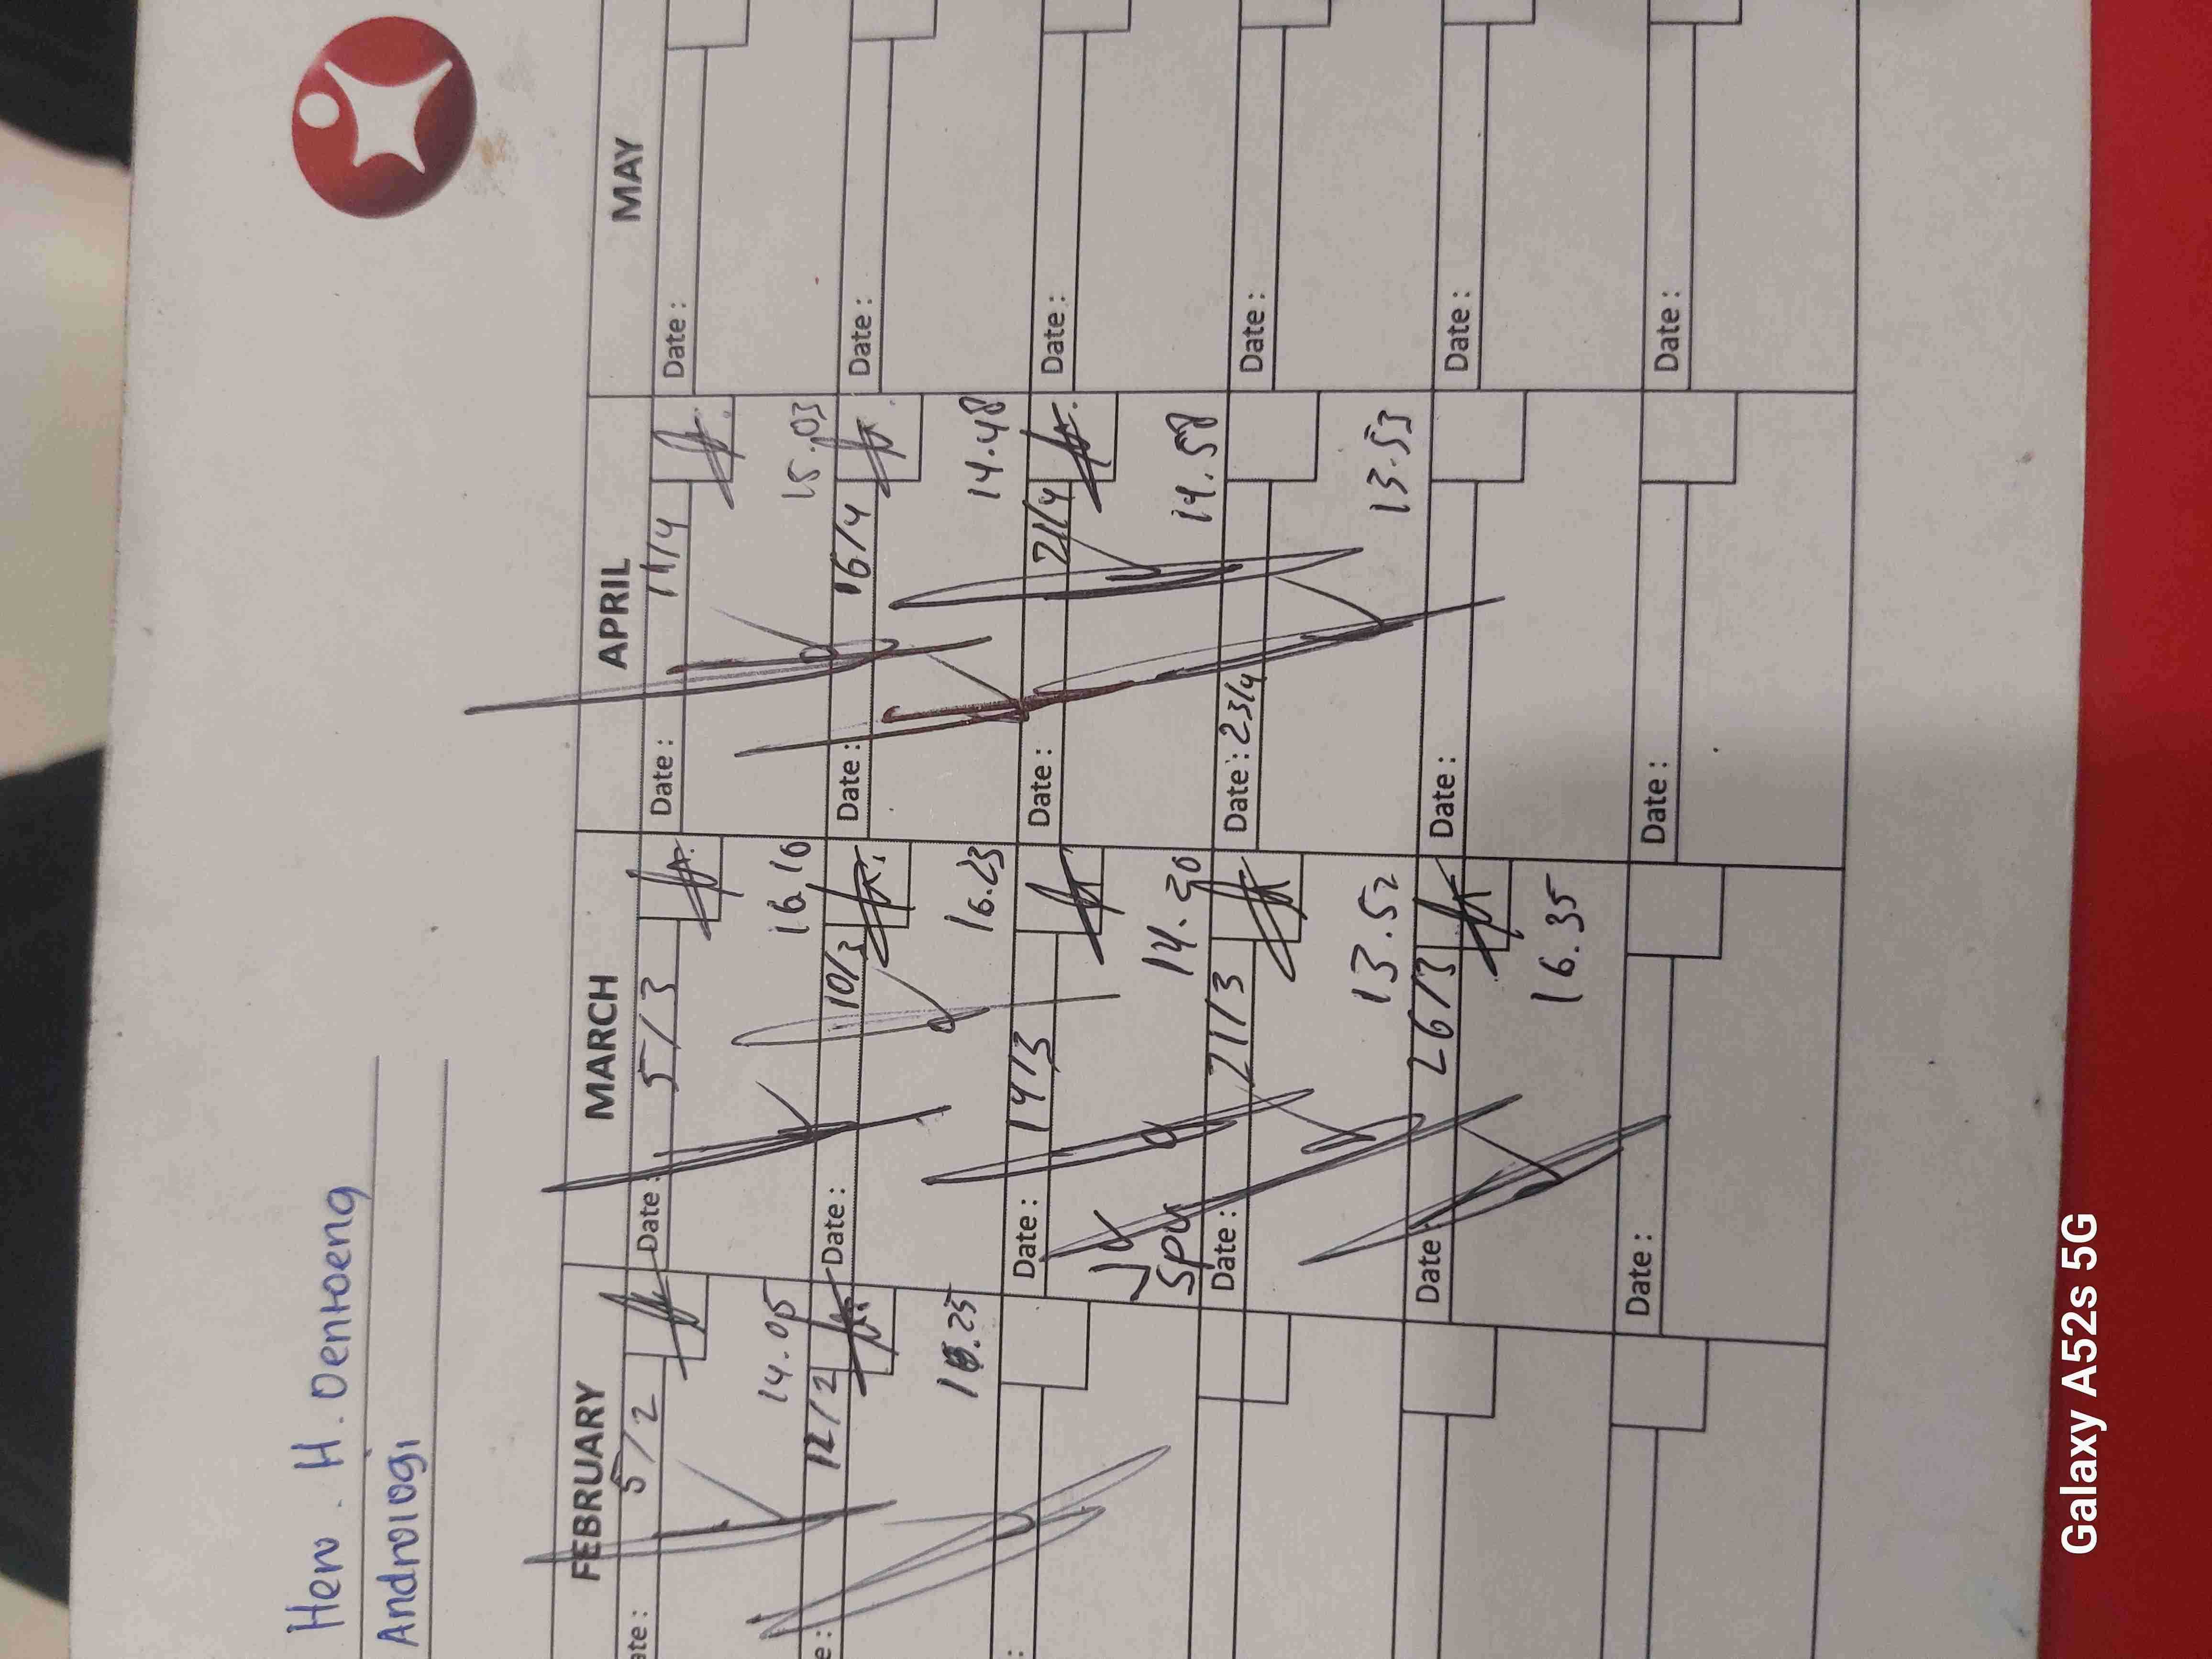 Herv. H. Oenkoeng
Andrologi
FEBRUARY MARCH APRIL MAY
ate: 5/2 Date: 5/3 Date: 11/4 Date:
14.05 16.10 15.03
e: 12/2 Date: 10/3 Date: 16/4 Date:
16.25 16.23 14.48
: Date: 14/3 Date: 21/4 Date:
14.30 14.58
Spu
Date: 21/3 Date: 23/4 Date:
13.52 13.53
Date: 26/3 Date: Date:
16.35
Date: Date: Date:
Galaxy A52s 5G